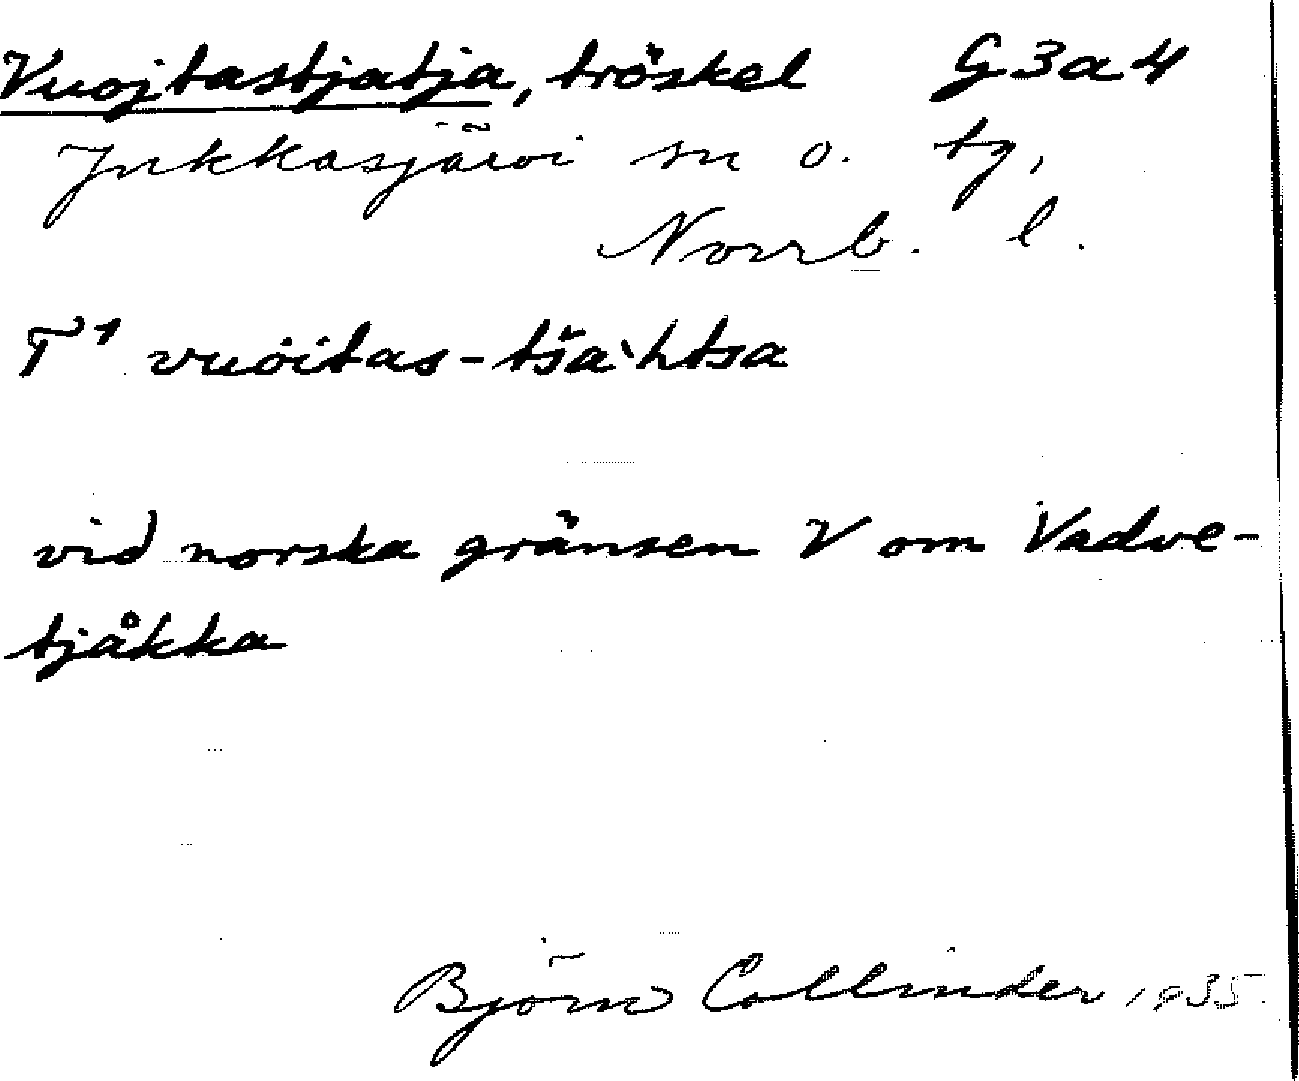 Vuojtastjatja, tröskel G3a4
Jukkasjärvi sn o. tg,
Norrb. l.
T¹ vuoitas-tša`htsa
vid norska gränsen V om Vadve-
tjåkka
Björn Collinder 1935.